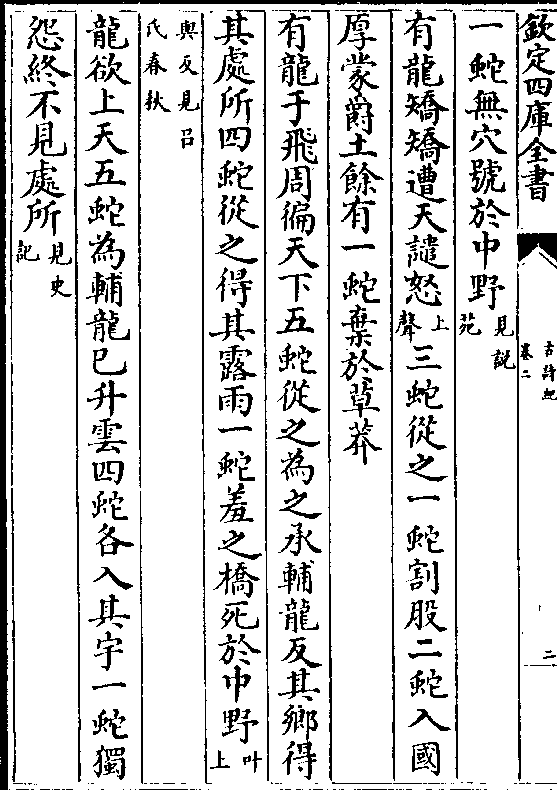 欽定四庫全書
古詩紀
卷二
二
一蛇無穴號於中野見說
苑
有龍矯矯遭天譴怒上
聲三蛇從之一蛇割股二蛇入國
厚蒙爵土餘有一蛇棄於草莽
有龍于飛周徧天下五蛇從之為之承輔龍反其鄉得
其處所四蛇從之得其露雨一蛇羞之橋死於中野叶
上
與反見吕
氏春秋
龍欲上天五蛇為輔龍已升雲四蛇各入其宇一蛇獨
怨終不見處所見史
記